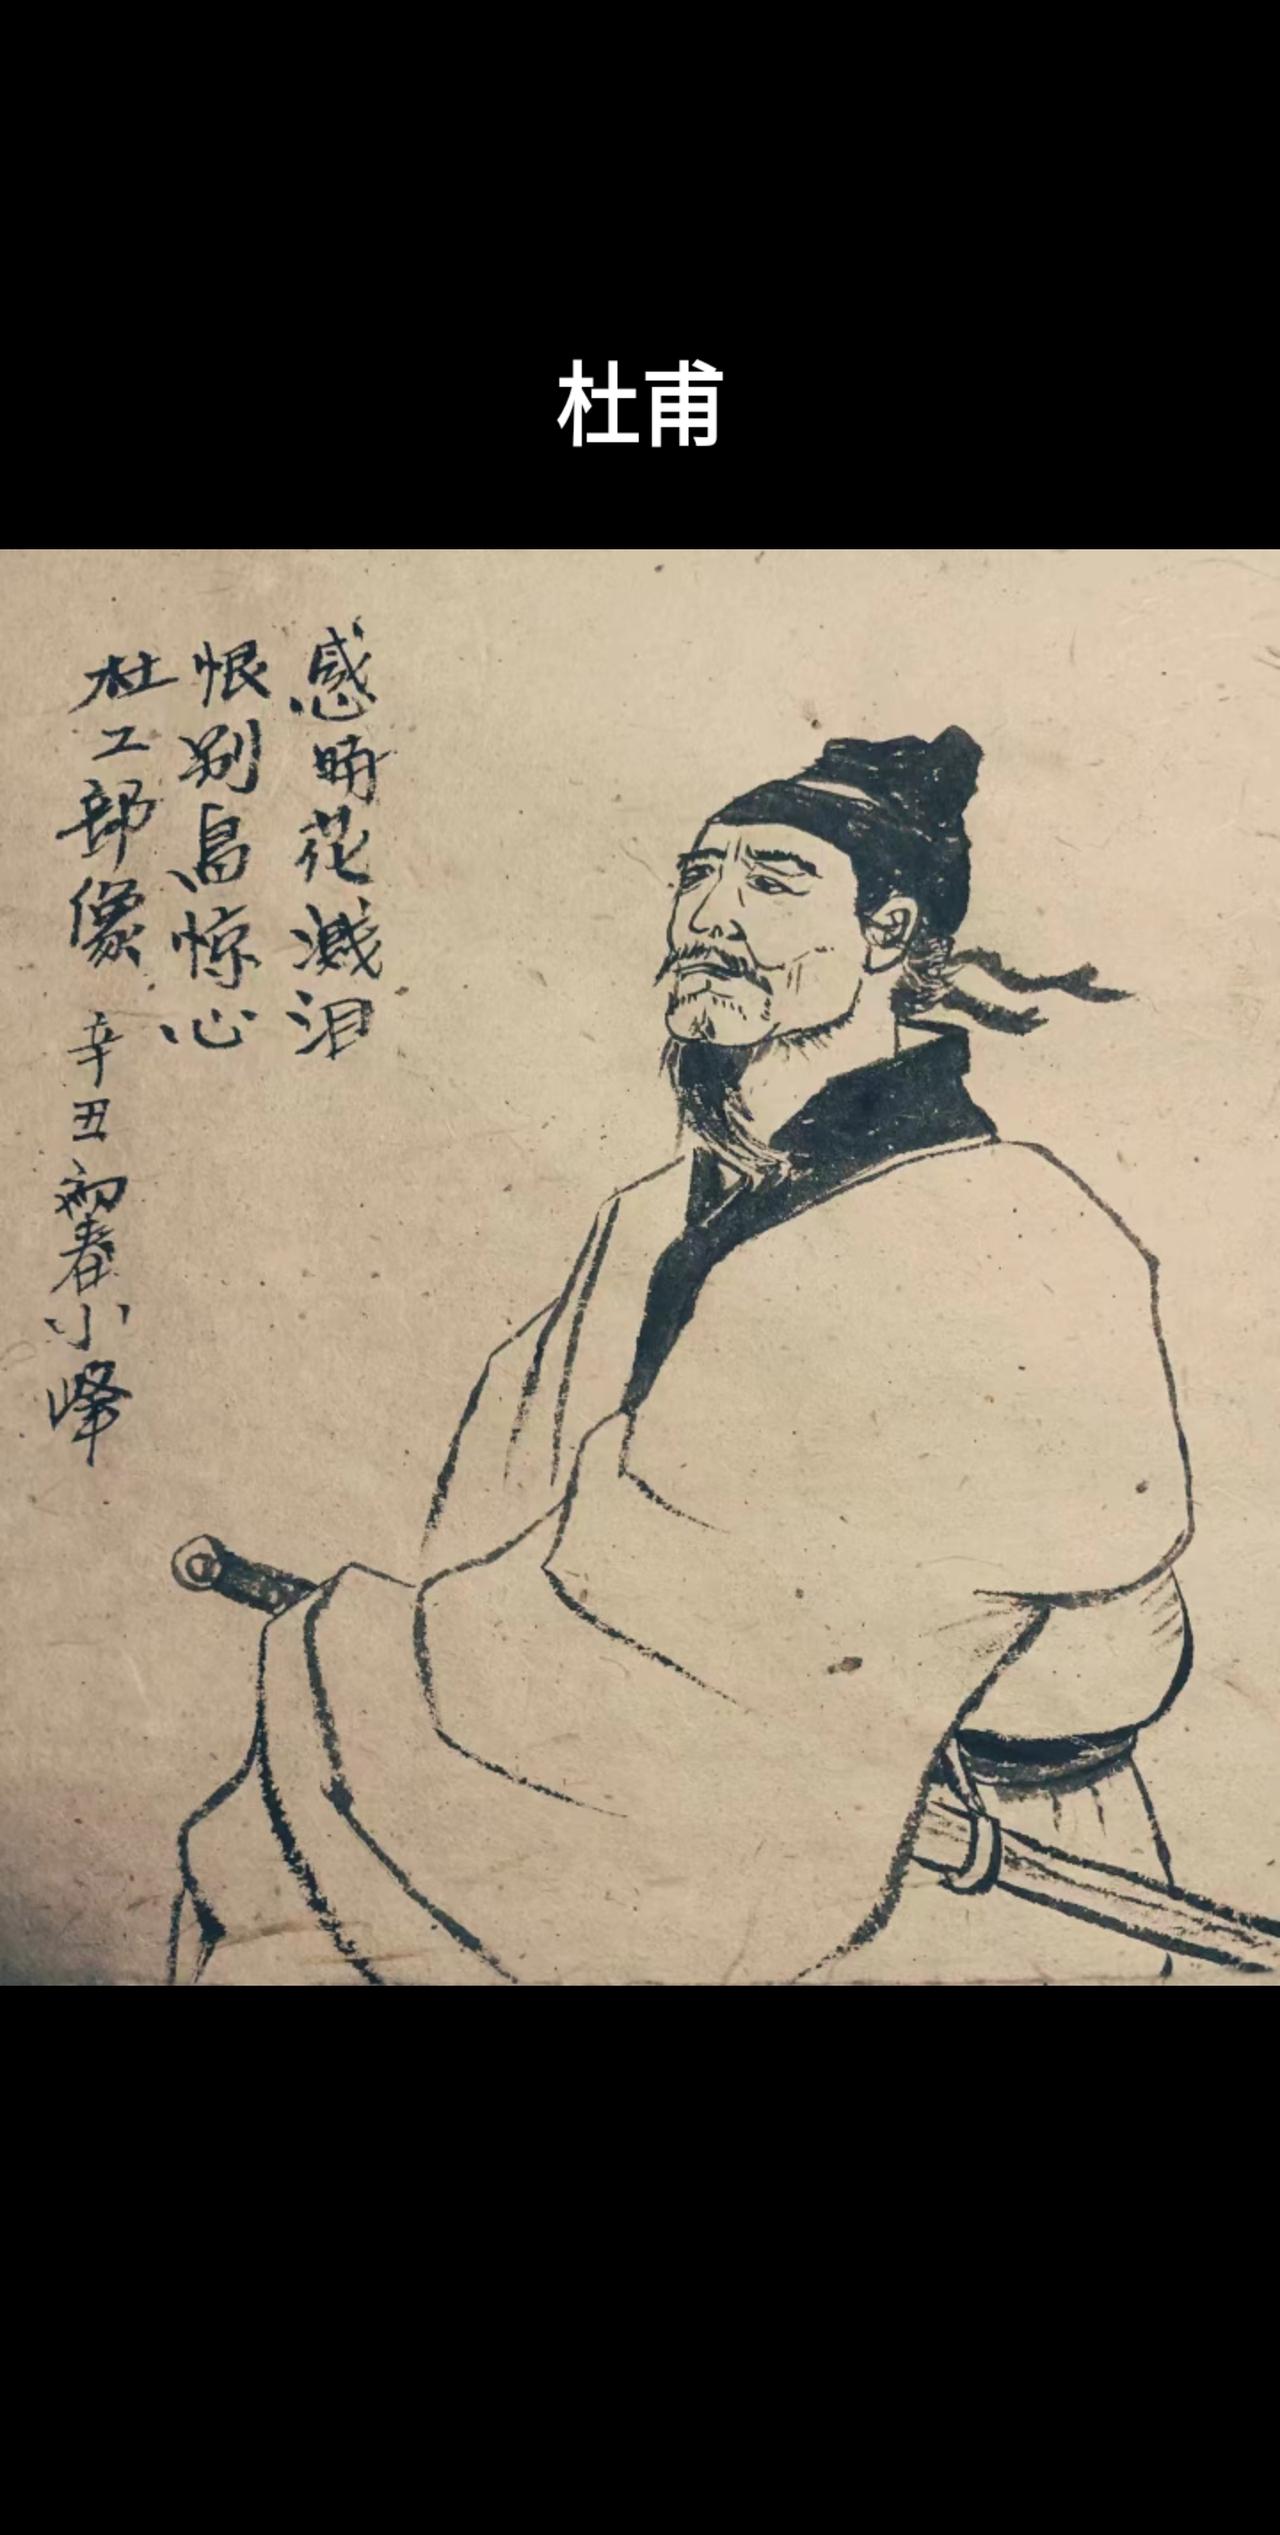 杜甫
感时花溅泪
恨别鸟惊心
杜工部像 辛丑初春小峰